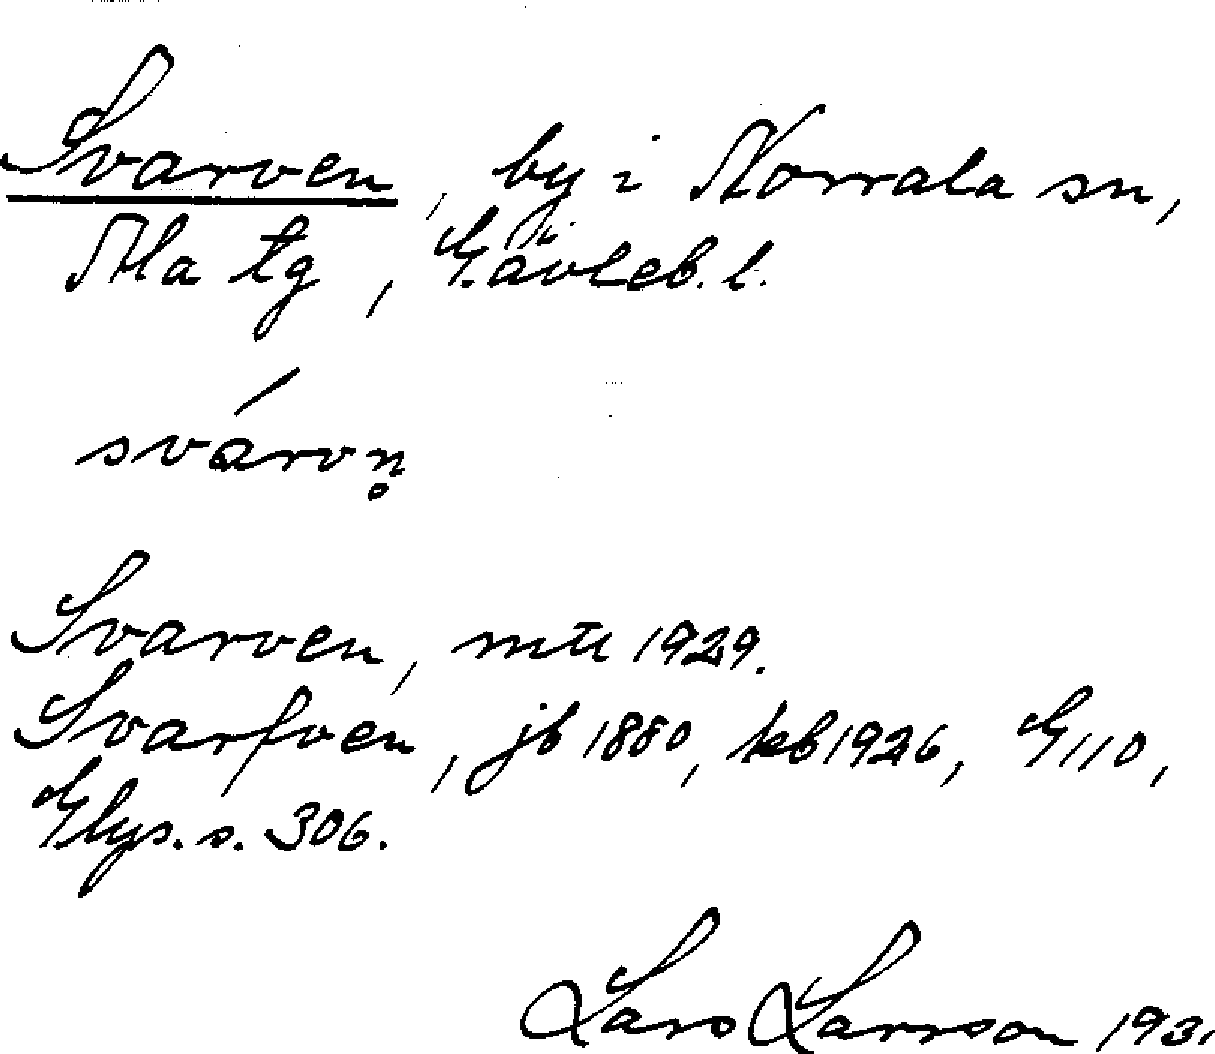 Svarven, by i Norrala sn,
Ala tg, Gävleb. l.
svárvn̥
Svarven, mtl 1929.
Svarfven, jb 1880, kb 1926, G 110,
Glys. s. 306.
Lars Larsson 1931